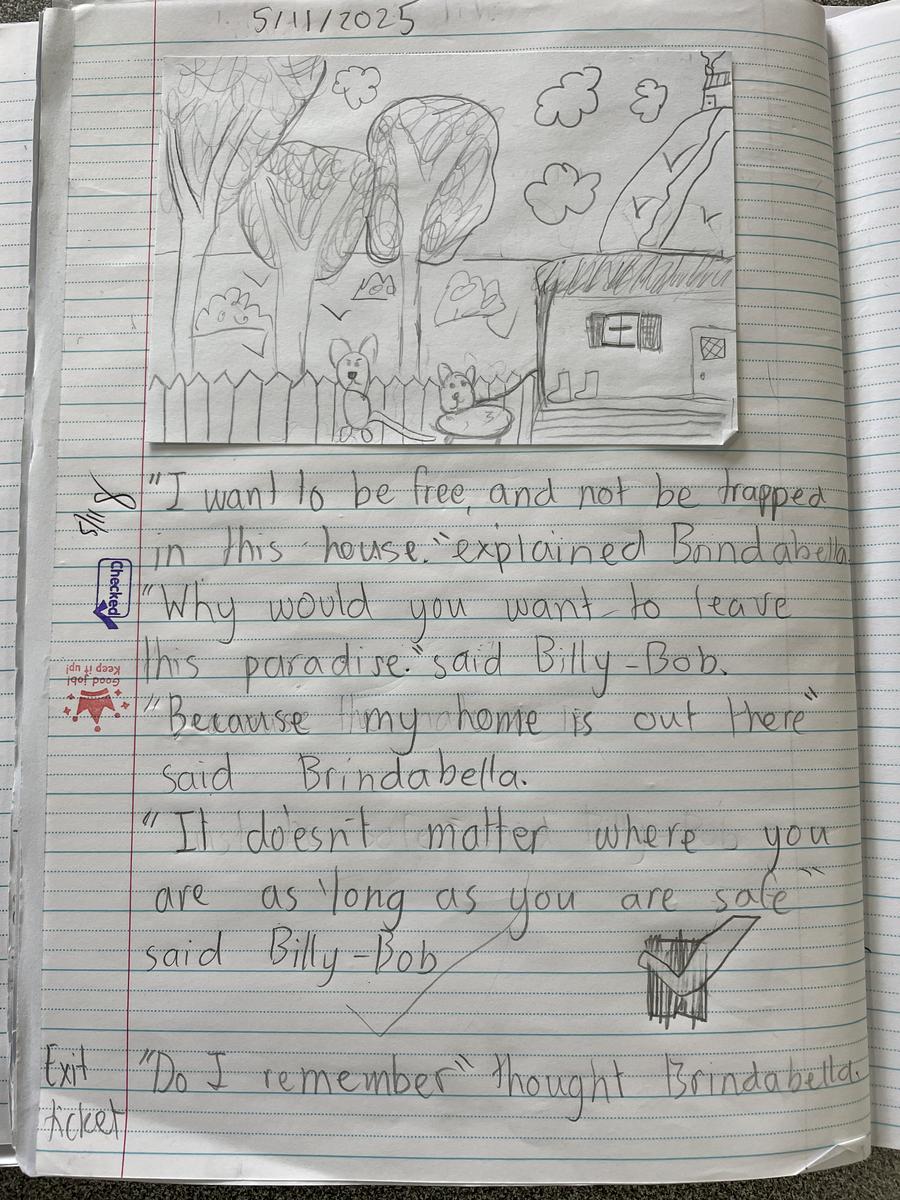 5/11/2025
"I want to be free, and not be trapped
in this house." explained Brindabella.
"Why would you want to leave
this paradise." said Billy-Bob.
"Because my home is out there"
said Brindabella.
"It doesn't matter where you
are as long as you are safe"
said Billy-Bob
Exit "Do I remember" thought Brindabella.
ticket
Checked
Good job!
Keep it up!